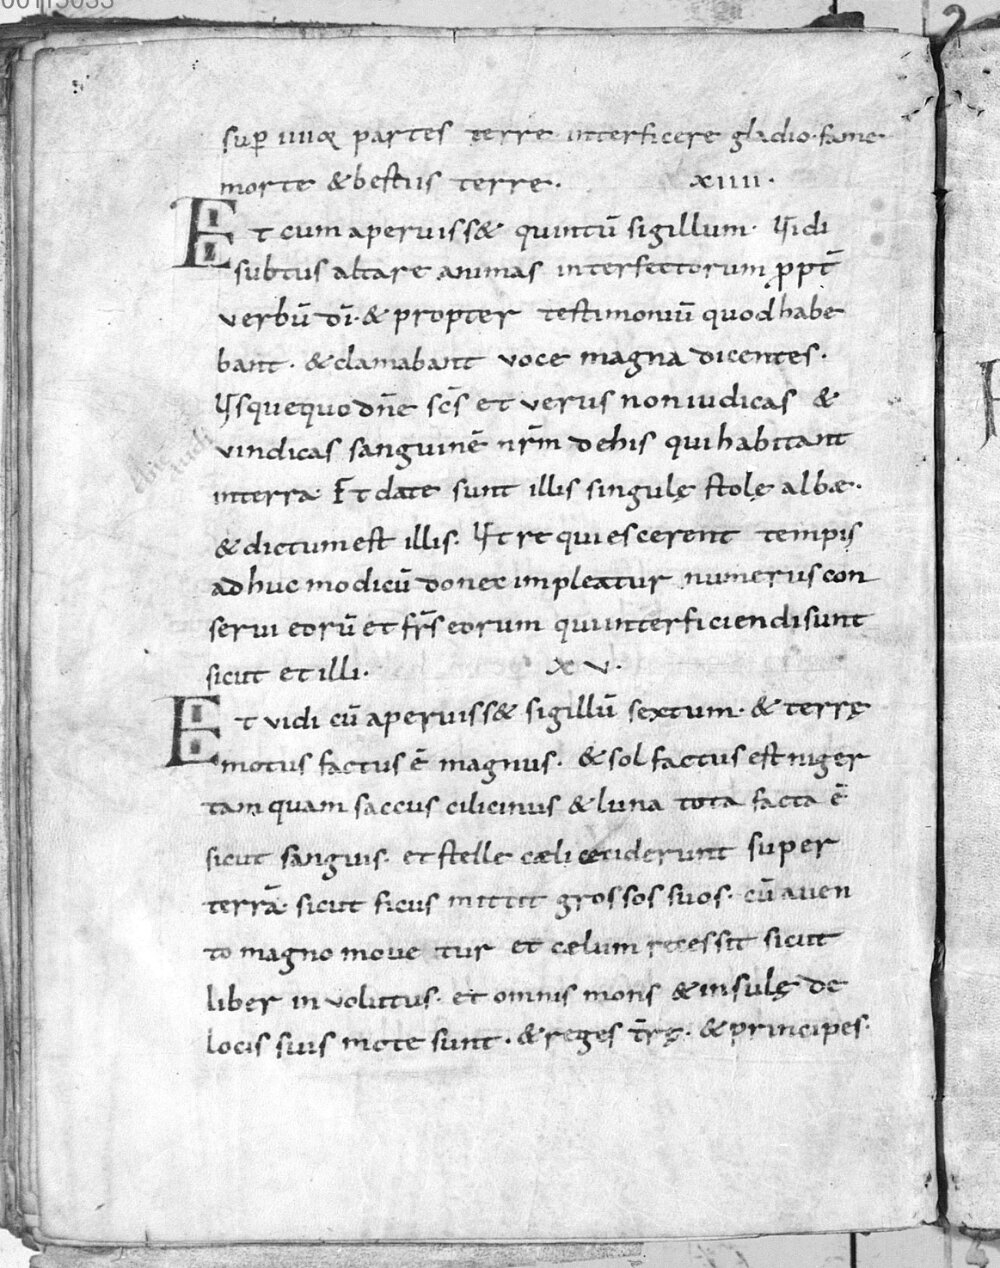 00115033
sup̄ iiiior partes terre interficere gladio·fame
morte & bestiis terre· xiiii·
Et cum aperuiss& quintū sigillum· Vidi
subtus altare animas interfectorum ꝓpt̄
verbū dī·& propter testimoniū quod habe
bant· & clamabant voce magna dicentes·
Vsquequo dn̄e sc̄s et verus non iudicas &
vindicas sanguinē nr̄m de his qui habitant
in terra· Et date sunt illis singulę stolę albæ·
& dictum est illis· Vt requiescerent tempis
adhuc modicū donec impleatur numerus con
serui eorū et fr̄s eorum qui interficiendi sunt
sicut et illi· xv·
Et vidi cū aperuiss& sigillū sextum· & terrę
motus factus ē magnus· & sol factus est niger
tamquam saccus cilicinus & luna tota facta ē
sicut sanguis· et stelle cæli ceciderunt super
terrā· sicut ficus mittit grossos suos· cū a uen
to magno mouetur et cælum recessit sicut
liber inuolutus· et omnis mons & insulę de
locis suis mote sunt· & reges t̄rę· & principes·